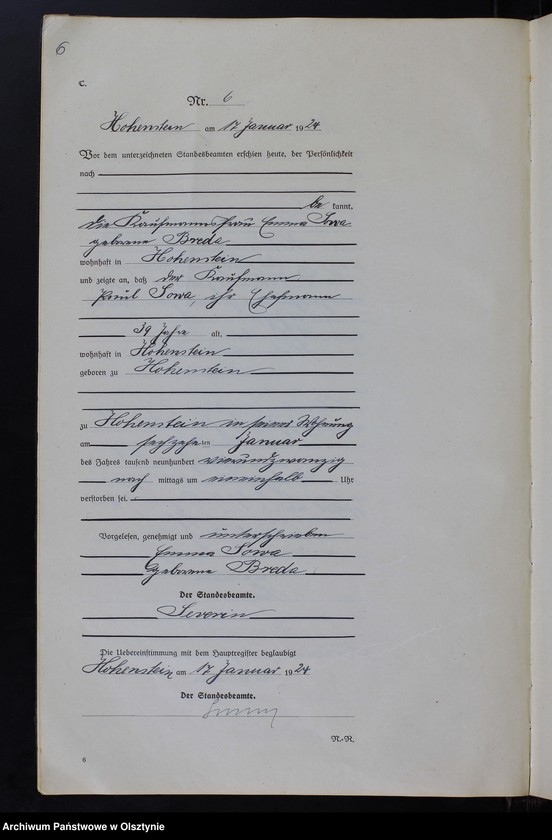 6
C.
Nr. 6
Hohenstein am 17 Januar 1924
Vor dem unterzeichneten Standesbeamten erschien heute, der Persönlichkeit
nach
be kannt,
die Kaufmannsfrau Emma Sowa
geborene Breda
wohnhaft in Hohenstein
und zeigte an, daß der Kaufmann
Paul Sowa, ihr Ehemann
39 Jahre alt,
wohnhaft in Hohenstein
geboren zu Hohenstein
zu Hohenstein in seiner Wohnung
am sechzehn ten Januar
des Jahres tausend neunhundert vierundzwanzig
nach mittags um neuneinhalb Uhr
verstorben sei.
Vorgelesen, genehmigt und unterschrieben
Emma Sowa
geborene Breda
Der Standesbeamte.
Severin
Die Uebereinstimmung mit dem Hauptregister beglaubigt
Hohenstein am 17 Januar 1924
Der Standesbeamte.
N.-R.
6
Archiwum Państwowe w Olsztynie